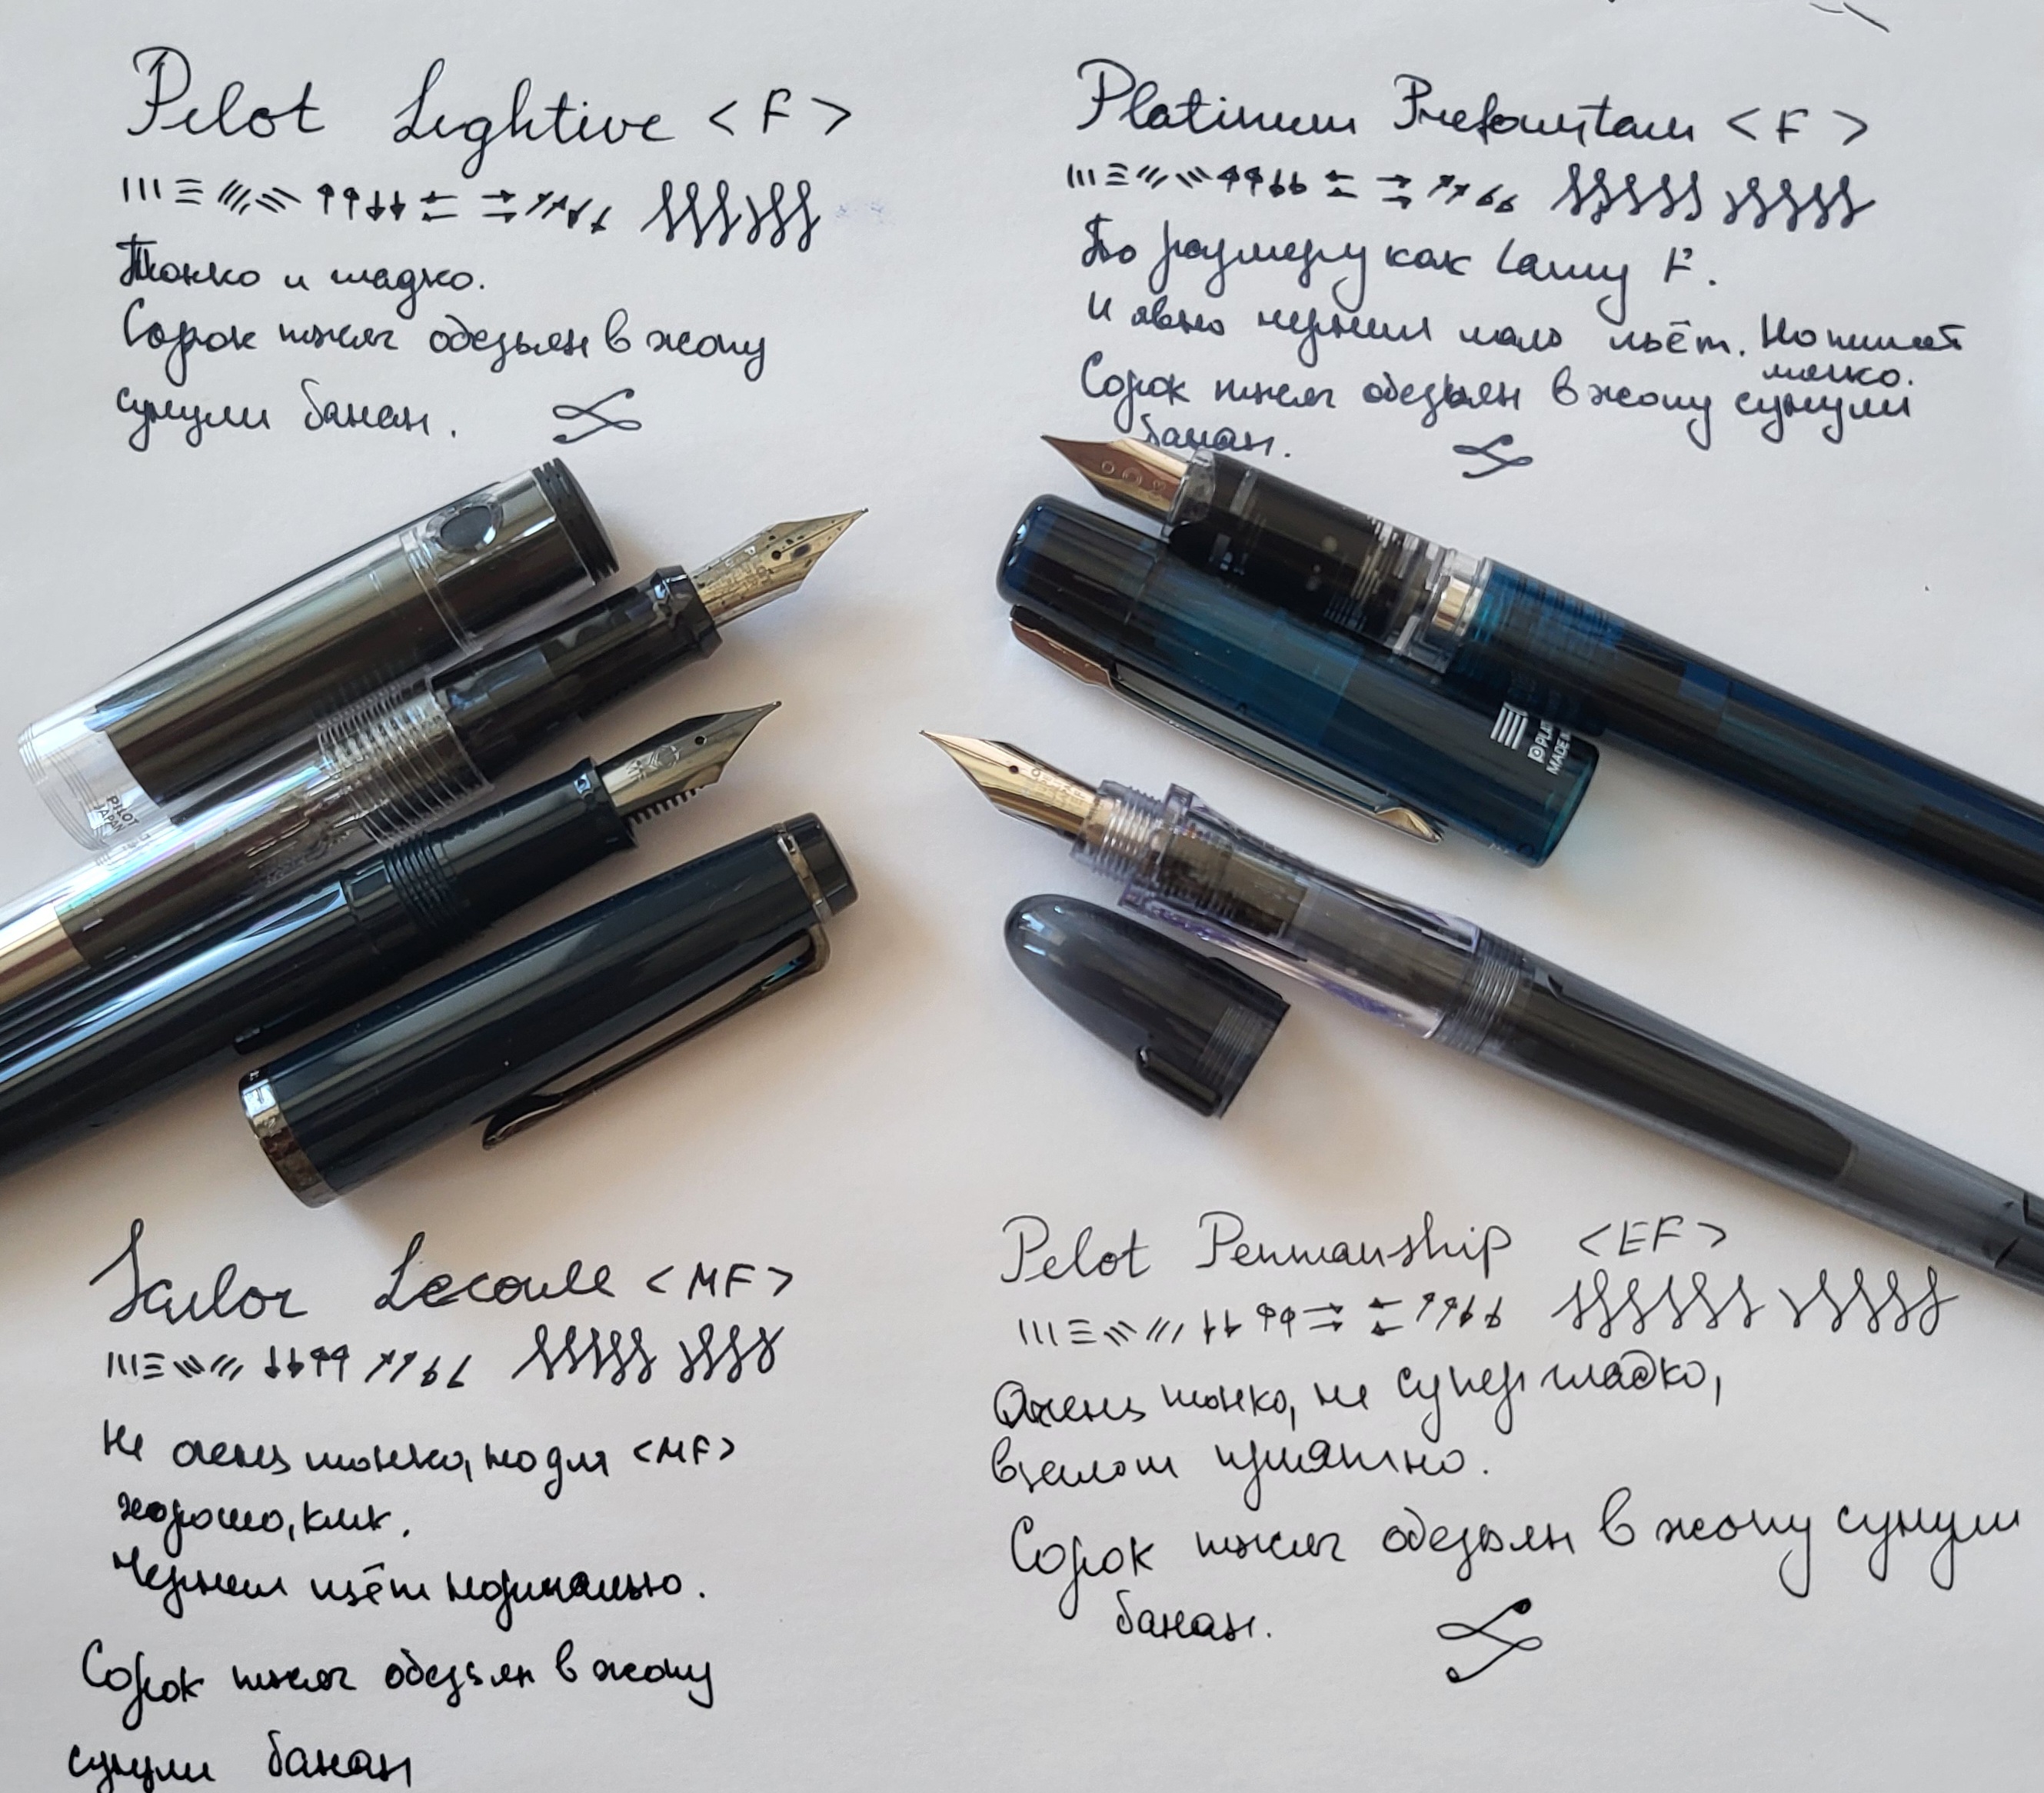 Pilot Lightive <F>
Тонко и гладко.
Сорок тысяч обезьян в жопу
сунули банан.
Platinum Prefountain <F>
По размеру как Lamy F.
И явно чернил мало льёт. Но пишет
мягко.
Сорок тысяч обезьян в жопу сунули
банан.
PILOT
JAPAN
PLAT
MADE IN
Sailor Lecoule <MF>
Не очень тонко, но для <MF>
хорошо, кмк.
Чернил льёт нормально.
Сорок тысяч обезьян в жопу
сунули банан
Pilot Penmanship <EF>
Очень тонко, не супер гладко,
вцелом приятно.
Сорок тысяч обезьян в жопу сунули
банан.